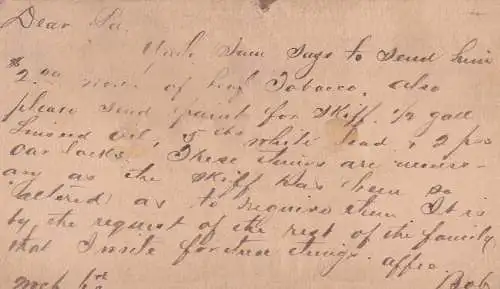 Dear Pa.
Uncle Sam says to send him
$2.00 more of leaf Tobacco, also
please send paint for skiff. 1/2 gall
Linseed Oil, 5 lbs white lead & 2 prs
oar locks. These things are necess-
ary as the skiff has been so
altered as to require them It is
by the request of the rest of the family
that I write for these things. affec.
Bob